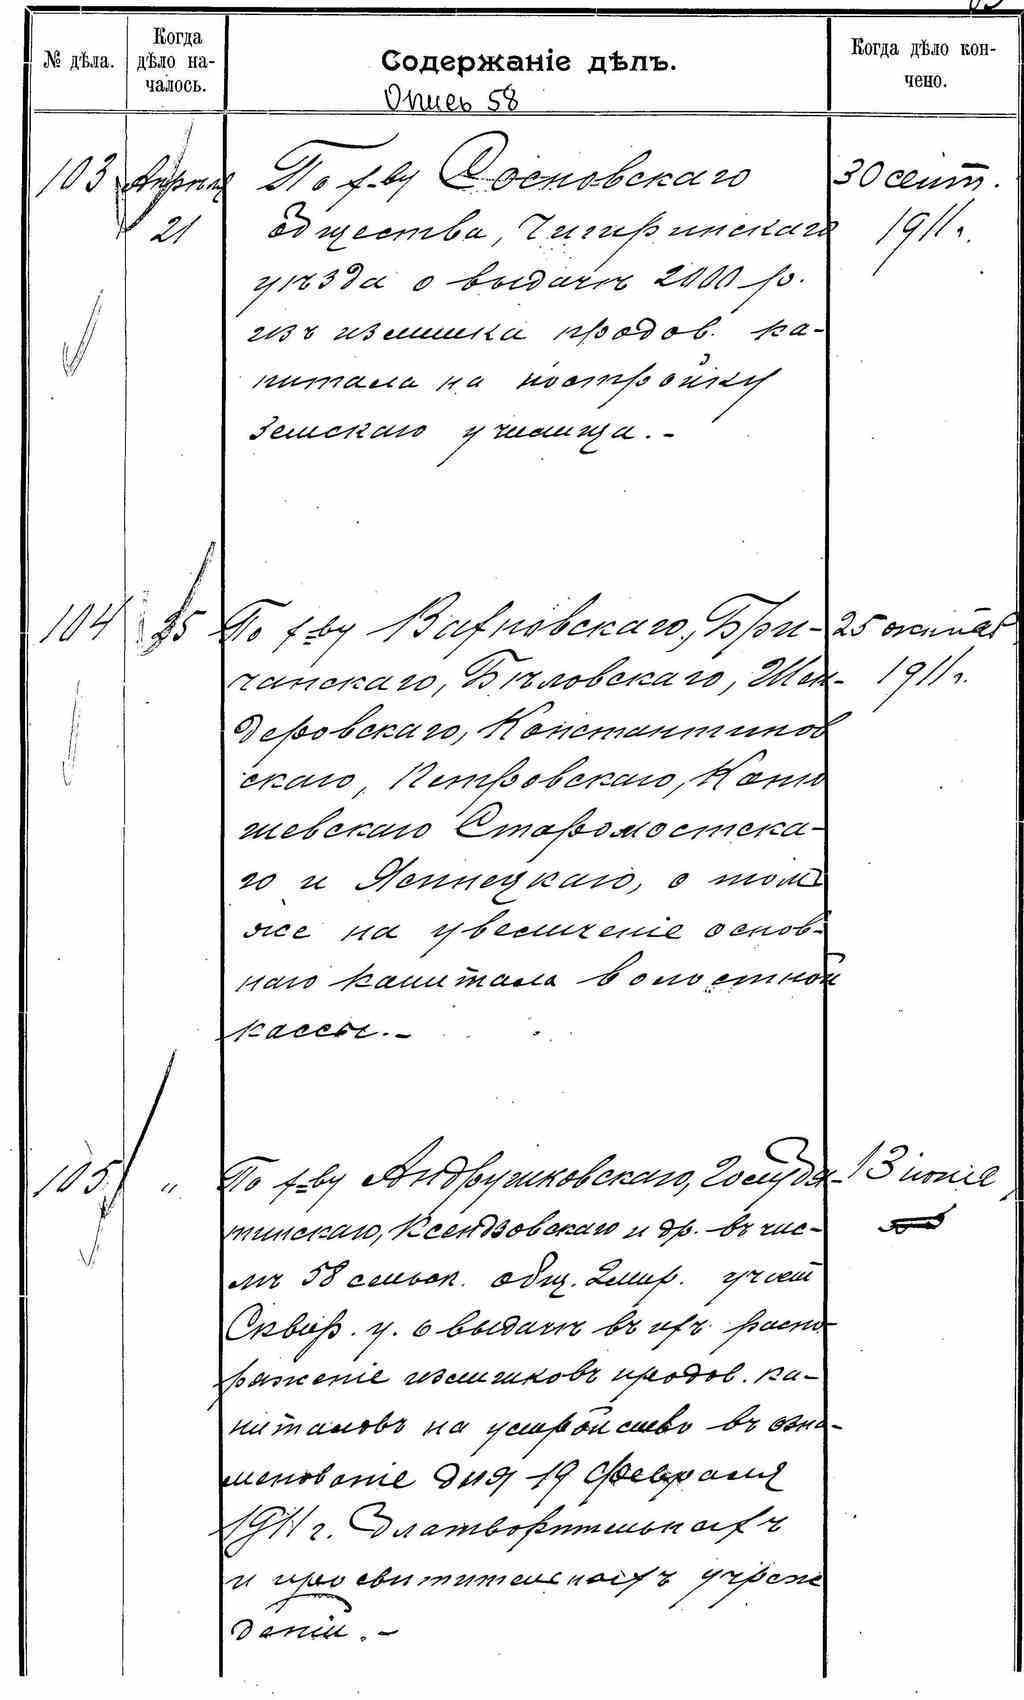 № дѣла.
Когда дѣло на-
чалось.
Содержаніе дѣлъ.
Опись 58
Когда дѣло кон-
чено.
103 Апрѣля 21
По х-ву Сосновскаго
общества, Чигиринскаго
уѣзда о выдачѣ 2000 р.
изъ излишка продов. ка-
питала на постройку
земскаго училища. -
30 сент.
1911 г.
104 25
По х-ву Вахновскаго, Бри-
чанскаго, Бѣловскаго, Шен-
деровскаго, Константинов
скаго, Петровскаго, Кото
шевскаго Старомостска-
го и Яснецкаго, о томъ
же на увеличеніе основ-
наго капитала волостной
кассы. -
25 октяб
1911 г.
105 "
По х-ву Андрушковскаго, Голубя-
тинскаго, Ксендзовскаго и др. въ чис-
лѣ 58 сельск. общ. 2 мир. участ
Сквир. у. о выдачѣ въ ихъ распо-
ряженіе излишковъ продов. ка-
питаловъ на устройство въ озна-
менованіе дня 19 февраля
1911 г. благотворительныхъ
и просвѣтительныхъ учреж
деній. -
13 іюня